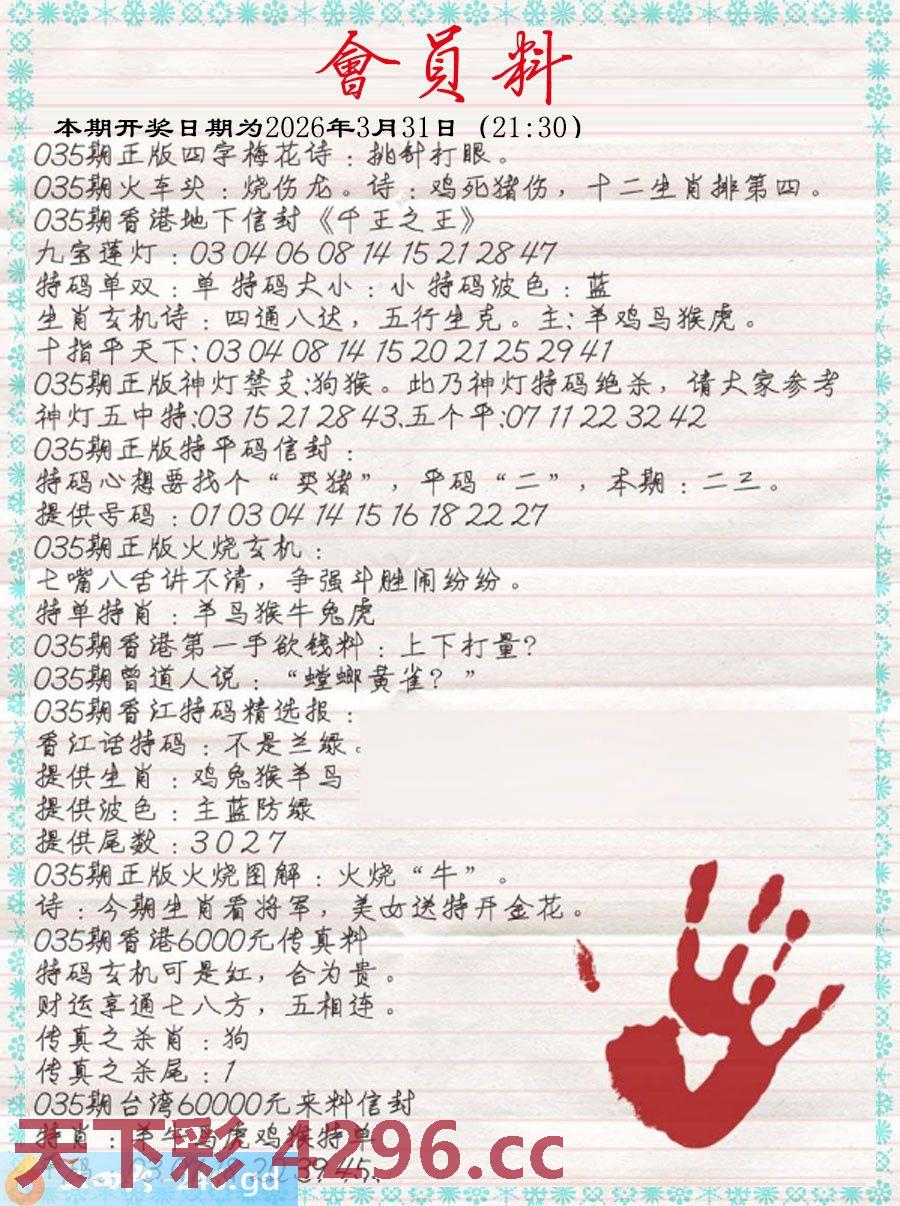 會員料
本期开奖日期为2026年3月31日（21:30）
035期正版四字梅花诗：挑针打眼。
035期火车头：烧伤龙。诗：鸡死猪伤，十二生肖排第四。
035期香港地下信封《千王之王》
九宝莲灯：03 04 06 08 14 15 21 28 47
特码单双：单 特码大小：小 特码波色：蓝
生肖玄机诗：四通八达，五行生克。主:羊鸡马猴虎。
十指平天下:03 04 08 14 15 20 21 25 29 41
035期正版神灯禁支:狗猴。此乃神灯特码绝杀，请大家参考
神灯五中特:03 15 21 28 43、五个平:07 11 22 32 42
035期正版特平码信封：
特码心想要找个“买猪”，平码“二”，本期：二三。
提供号码：01 03 04 14 15 16 18 22 27
035期正版火烧玄机：
七嘴八舌讲不清，争强斗胜闹纷纷。
特单特肖：羊马猴牛兔虎
035期香港第一手欲钱料：上下打量?
035期曾道人说：“螳螂黄雀？”
035期香江特码精选报：
香江话特码：不是兰绿。
提供生肖：鸡兔猴羊马
提供波色：主蓝防绿
提供尾数：3 0 2 7
035期正版火烧图解：火烧“牛”。
诗：今期生肖看将军，美女送特开金花。
035期香港6000元传真料
特码玄机可是红，合为贵。
财运享通七八方，五相连。
传真之杀肖：狗
传真之杀尾：1
035期台湾60000元来料信封
特肖：羊牛马虎鸡猴特单
天下彩4296.cc
39 45
.gd